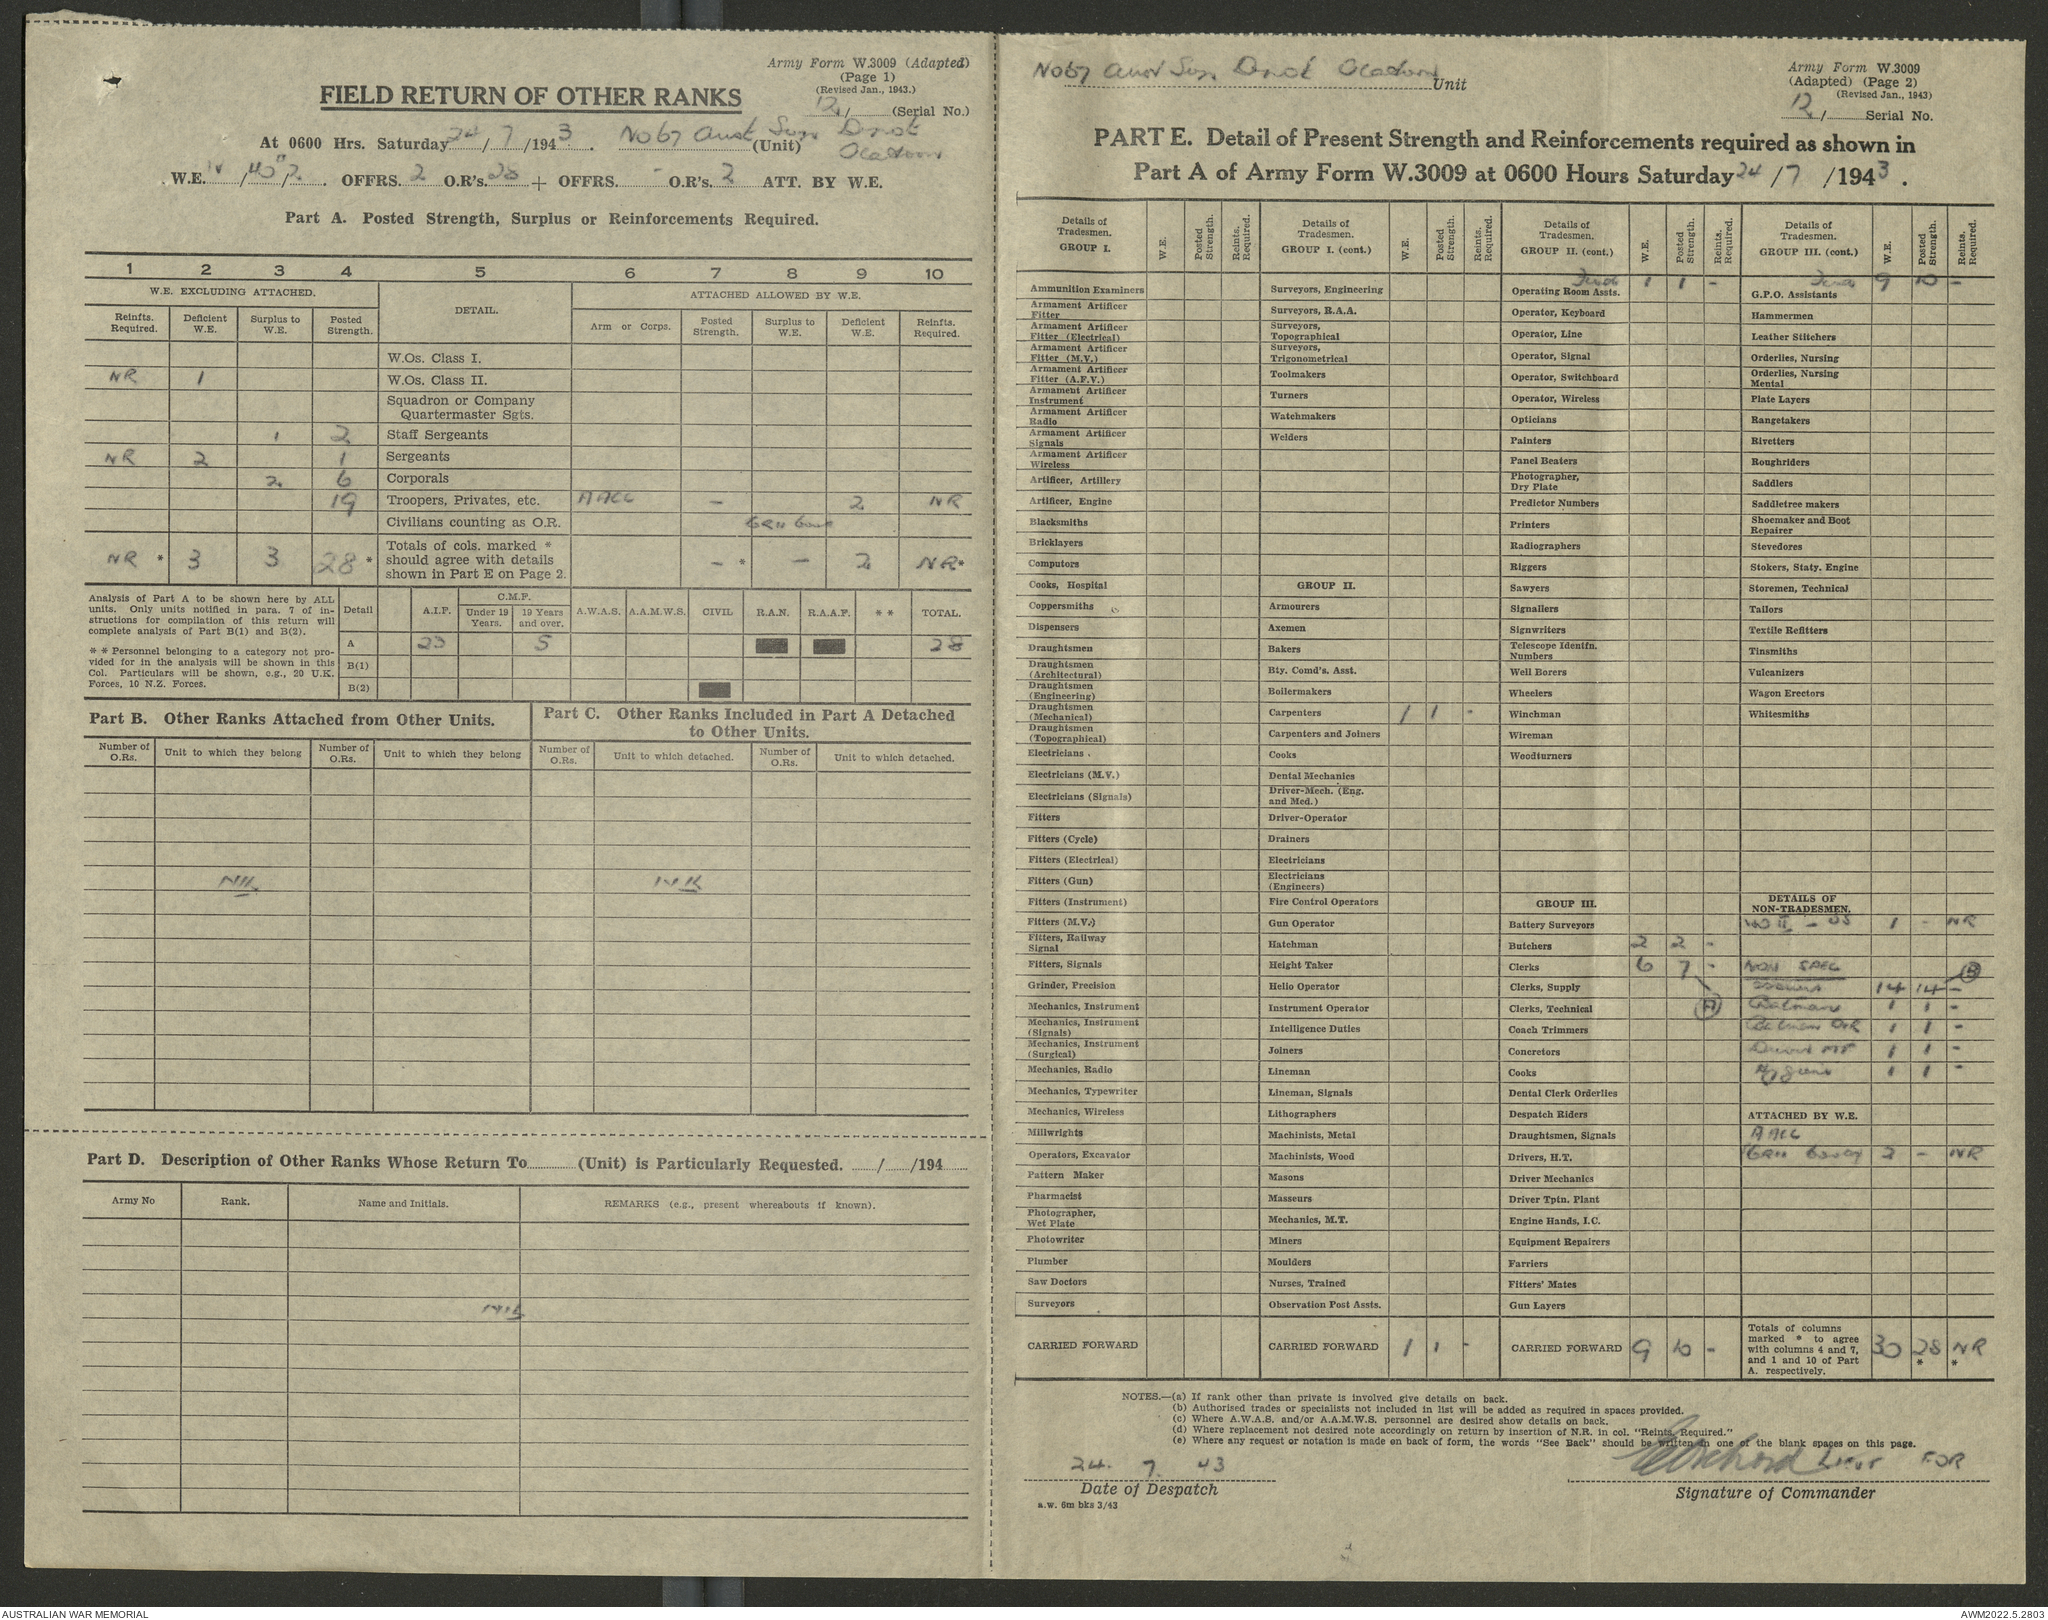 Army Form W.3009 (Adapted)
(Page 1)
(Revised Jan., 1943.)
12/ (Serial No.)
FIELD RETURN OF OTHER RANKS
At 0600 Hrs. Saturday 24/7/1943. No 67 Aust Sup Depot (Unit)
W.E. OFFRS. 2 O.R's. 28 + OFFRS. - O.R's. 2 ATT. BY W.E.
Part A. Posted Strength, Surplus or Reinforcements Required.
1 2 3 4 5 6 7 8 9 10
W.E. EXCLUDING ATTACHED. DETAIL. ATTACHED ALLOWED BY W.E.
Reinfts. Required. Deficient W.E. Surplus to W.E. Posted Strength. Arm or Corps. Posted Strength. Surplus to W.E. Deficient W.E. Reinfts. Required.
W.Os. Class I.
NR 1 W.Os. Class II.
Squadron or Company Quartermaster Sgts.
1 2 Staff Sergeants
NR 2 1 Sergeants
2 6 Corporals
19 Troopers, Privates, etc. AACC - 2 NR
Civilians counting as O.R.
NR * 3 3 28 * Totals of cols. marked * should agree with details shown in Part E on Page 2. - * - 2 NR*
Analysis of Part A to be shown here by ALL units. Only units notified in para. 7 of instructions for compilation of this return will complete analysis of Part B(1) and B(2).
* * Personnel belonging to a category not provided for in the analysis will be shown in this Col. Particulars will be shown, e.g., 20 U.K. Forces, 10 N.Z. Forces.
Detail A.I.F. C.M.F. Under 19 Years. 19 Years and over. A.W.A.S. A.A.M.W.S. CIVIL R.A.N. R.A.A.F. * * TOTAL.
A 23 5 28
B(1)
B(2)
Part B. Other Ranks Attached from Other Units.
Part C. Other Ranks Included in Part A Detached to Other Units.
Number of O.Rs. Unit to which they belong Number of O.Rs. Unit to which they belong Number of O.Rs. Unit to which detached. Number of O.Rs. Unit to which detached.
NIL NIL
Part D. Description of Other Ranks Whose Return To (Unit) is Particularly Requested. / /194
Army No Rank. Name and Initials. REMARKS (e.g., present whereabouts if known).
NIL
No 67 Aust Sup Depot Unit
Army Form W.3009
(Adapted) (Page 2)
(Revised Jan., 1943)
12/ Serial No.
PART E. Detail of Present Strength and Reinforcements required as shown in
Part A of Army Form W.3009 at 0600 Hours Saturday 24/7/1943.
Details of Tradesmen. GROUP I. W.E. Posted Strength. Reints. Required.
Ammunition Examiners
Armament Artificer Fitter
Armament Artificer Fitter (Electrical)
Armament Artificer Fitter (M.V.)
Armament Artificer Fitter (A.F.V.)
Armament Artificer Instrument
Armament Artificer Radio
Armament Artificer Signals
Armament Artificer Wireless
Artificer, Artillery
Artificer, Engine
Blacksmiths
Bricklayers
Computors
Cooks, Hospital
Coppersmiths
Dispensers
Draughtsmen
Draughtsmen (Architectural)
Draughtsmen (Engineering)
Draughtsmen (Mechanical)
Draughtsmen (Topographical)
Electricians
Electricians (M.V.)
Electricians (Signals)
Fitters
Fitters (Cycle)
Fitters (Electrical)
Fitters (Gun)
Fitters (Instrument)
Fitters (M.V.)
Fitters, Railway Signal
Fitters, Signals
Grinder, Precision
Mechanics, Instrument
Mechanics, Instrument (Signals)
Mechanics, Instrument (Surgical)
Mechanics, Radio
Mechanics, Typewriter
Mechanics, Wireless
Millwrights
Operators, Excavator
Pattern Maker
Pharmacist
Photographer, Wet Plate
Photowriter
Plumber
Saw Doctors
Surveyors
CARRIED FORWARD
Details of Tradesmen. GROUP I. (cont.) W.E. Posted Strength. Reints. Required.
Surveyors, Engineering
Surveyors, R.A.A.
Surveyors, Topographical
Surveyors, Trigonometrical
Toolmakers
Turners
Watchmakers
Welders
GROUP II.
Armourers
Axemen
Bakers
Bty. Comd's. Asst.
Boilermakers
Carpenters 1 1 -
Carpenters and Joiners
Cooks
Dental Mechanics
Driver-Mech. (Eng. and Med.)
Driver-Operator
Drainers
Electricians
Electricians (Engineers)
Fire Control Operators
Gun Operator
Hatchman
Height Taker
Helio Operator
Instrument Operator
Intelligence Duties
Joiners
Lineman
Lineman, Signals
Lithographers
Machinists, Metal
Machinists, Wood
Masons
Masseurs
Mechanics, M.T.
Miners
Moulders
Nurses, Trained
Observation Post Assts.
CARRIED FORWARD 1 1 -
Details of Tradesmen. GROUP II. (cont.) W.E. Posted Strength. Reints. Required.
Fwd 1 1 -
Operating Room Assts.
Operator, Keyboard
Operator, Line
Operator, Signal
Operator, Switchboard
Operator, Wireless
Opticians
Painters
Panel Beaters
Photographer, Dry Plate
Predictor Numbers
Printers
Radiographers
Riggers
Sawyers
Signallers
Signwriters
Telescope Identfn. Numbers
Well Borers
Wheelers
Winchman
Wireman
Woodturners
GROUP III.
Battery Surveyors
Butchers 2 2 -
Clerks 6 7 -
Clerks, Supply
Clerks, Technical (A)
Coach Trimmers
Concretors
Cooks
Dental Clerk Orderlies
Despatch Riders
Draughtsmen, Signals
Drivers, H.T.
Driver Mechanics
Driver Tptn. Plant
Engine Hands, I.C.
Equipment Repairers
Farriers
Fitters' Mates
Gun Layers
CARRIED FORWARD 9 10 -
Details of Tradesmen. GROUP III. (cont.) W.E. Posted Strength. Reints. Required.
Fwd 9 10 -
G.P.O. Assistants
Hammermen
Leather Stitchers
Orderlies, Nursing
Orderlies, Nursing Mental
Plate Layers
Rangetakers
Rivetters
Roughriders
Saddlers
Saddletree makers
Shoemaker and Boot Repairer
Stevedores
Stokers, Staty. Engine
Storemen, Technical
Tailors
Textile Refitters
Tinsmiths
Vulcanizers
Wagon Erectors
Whitesmiths
DETAILS OF NON-TRADESMEN.
WO II - 1 - NR
NON SPEC (B)
Issuers 14 14 -
Batman 1 1 -
Batman 1 1 -
Driver MT 1 1 -
Hygiene 1 1 -
ATTACHED BY W.E.
AACC
2 - NR
Totals of columns marked * to agree with columns 4 and 7, and 1 and 10 of Part A. respectively. 30 28 * NR *
NOTES.—(a) If rank other than private is involved give details on back.
(b) Authorised trades or specialists not included in list will be added as required in spaces provided.
(c) Where A.W.A.S. and/or A.A.M.W.S. personnel are desired show details on back.
(d) Where replacement not desired note accordingly on return by insertion of N.R. in col. "Reints. Required."
(e) Where any request or notation is made on back of form, the words "See Back" should be written in one of the blank spaces on this page.
24. 7. 43
Lieut FOR
Date of Despatch
Signature of Commander
a.w. 6m bks 3/43
AUSTRALIAN WAR MEMORIAL
AWM2022.5.2803